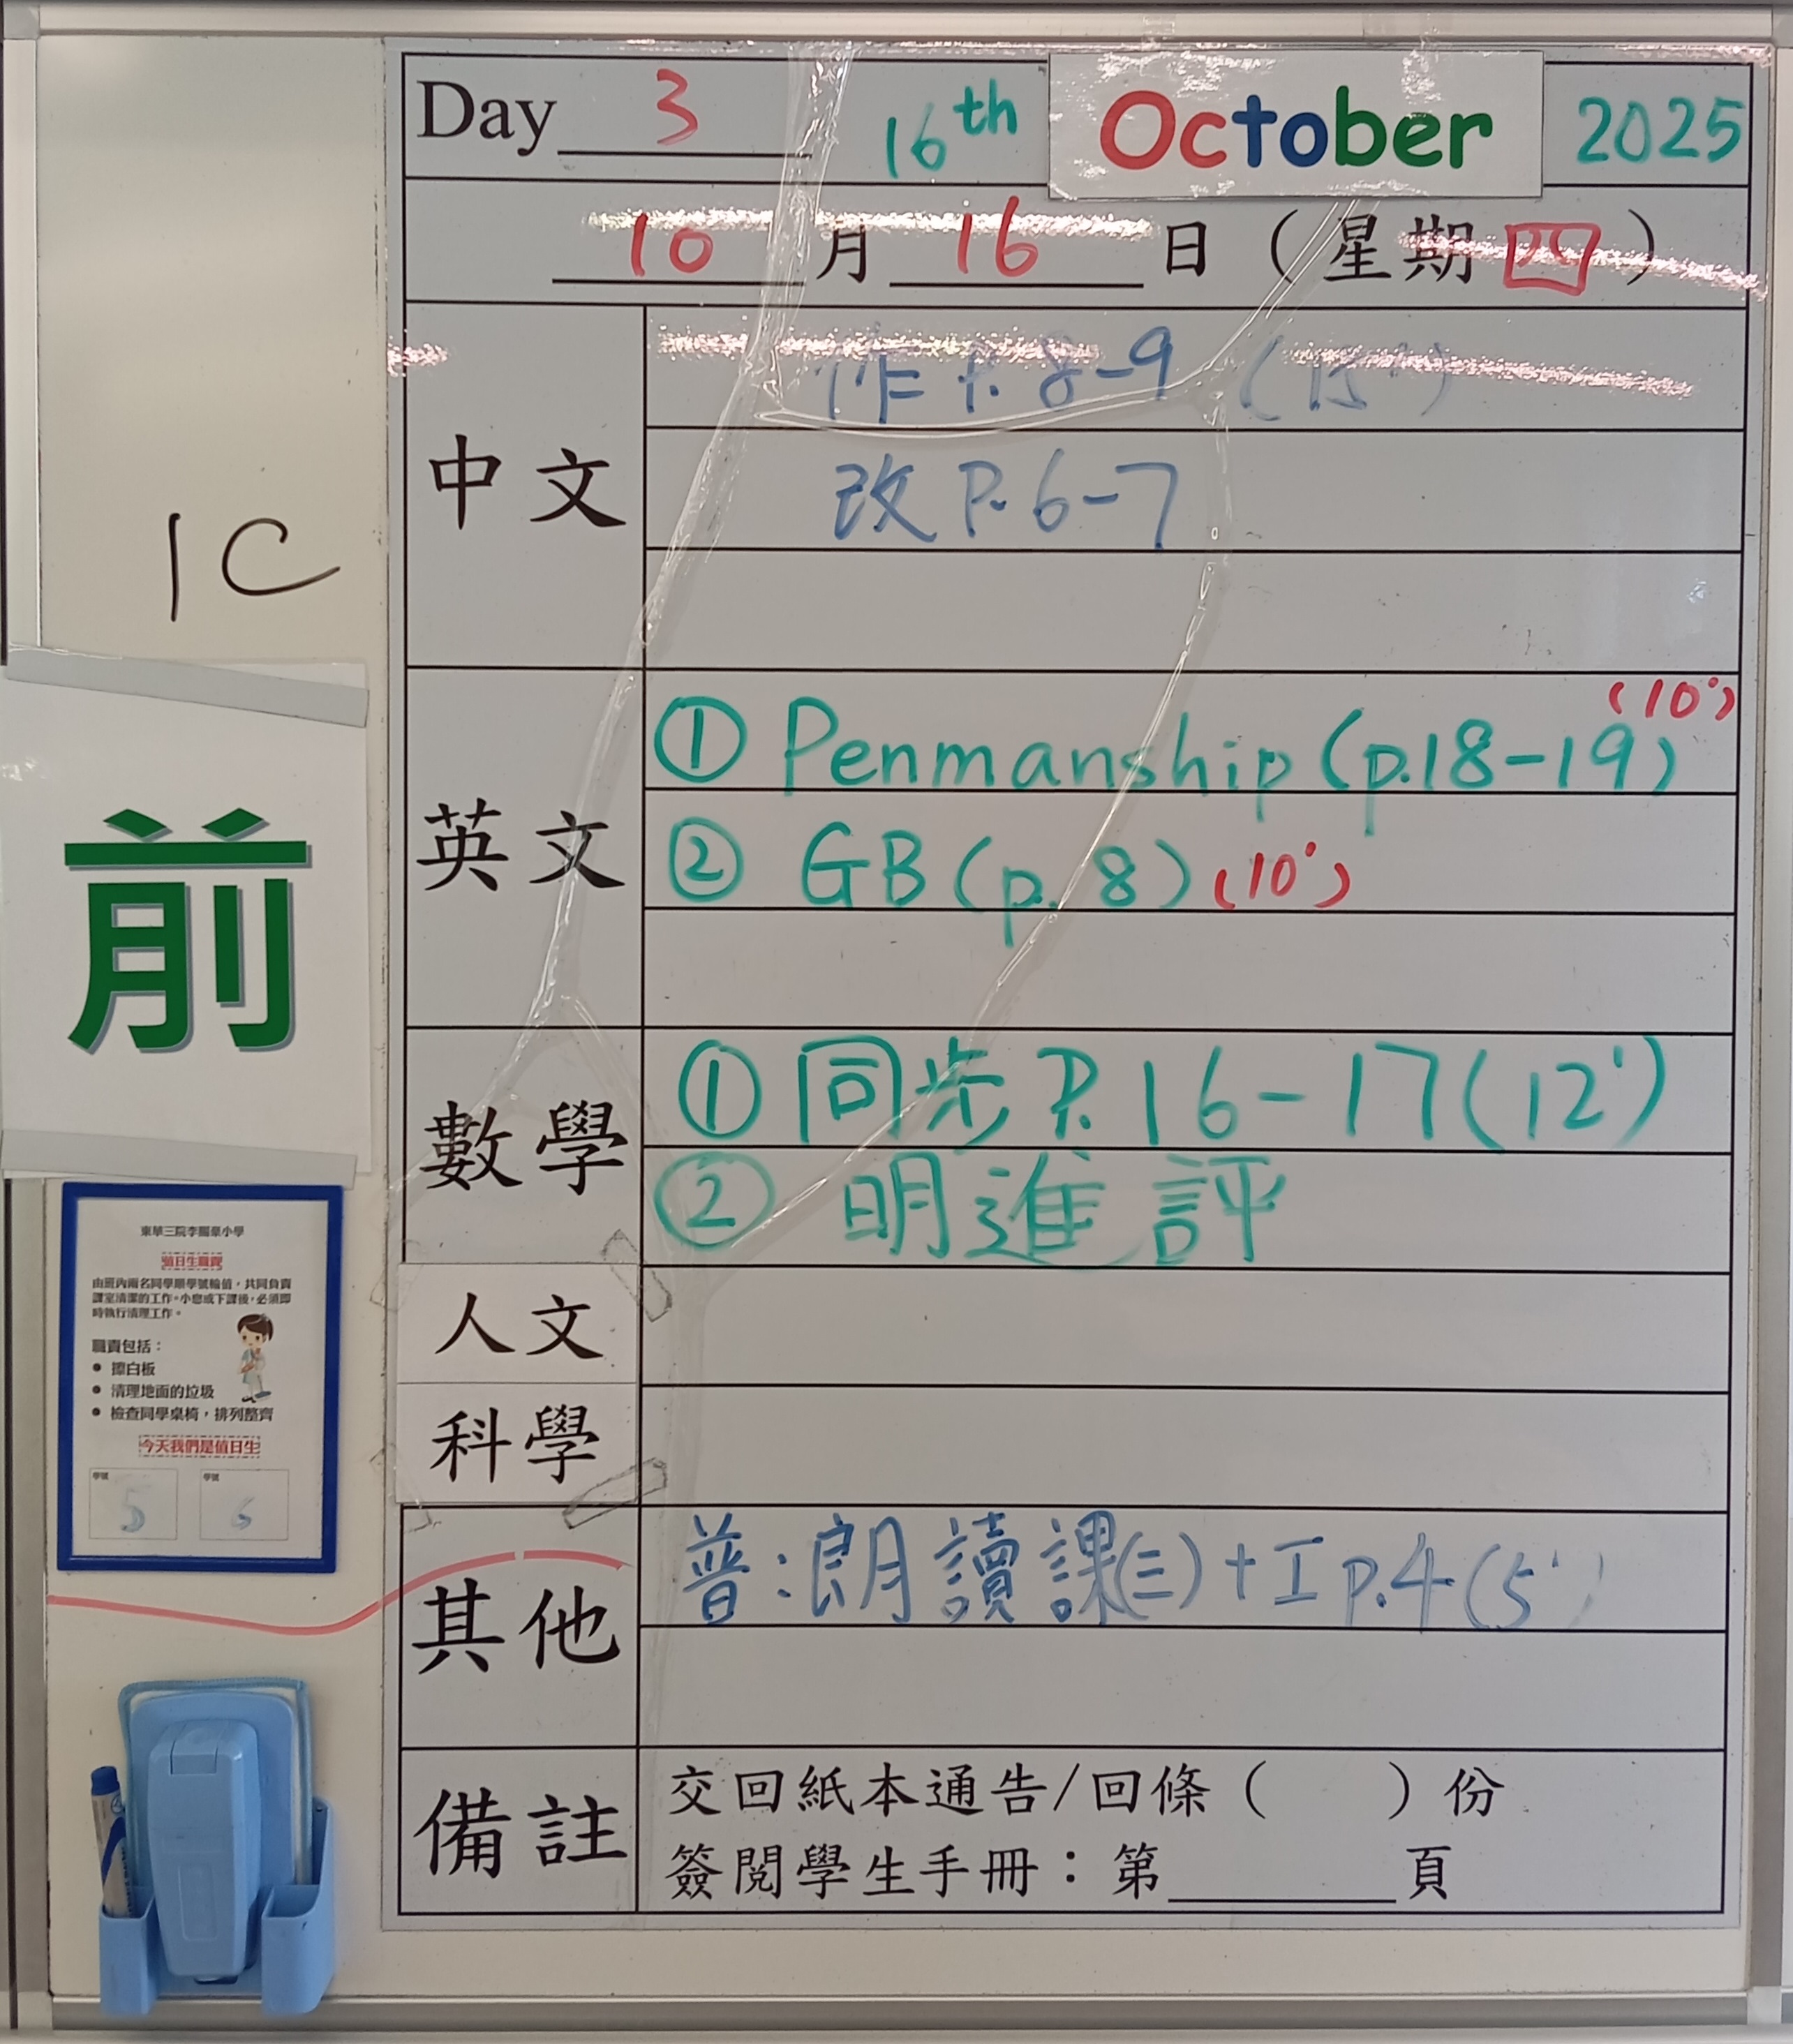 Day 3 16th October 2025
10 月 16 日（星期 四）
中文
作 P. 8-9 (15')
改 P. 6-7
1C
英文
① Penmanship (p.18-19) (10')
② GB (p. 8) (10')
前
數學
① 同步 P. 16-17 (12')
② 明進評
人文
科學
其他
普:朗讀課(三)+I p.4 (5')
備註
交回紙本通告/回條（　　）份
簽閱學生手冊：第______頁
值日生職責
由班內兩名同學順學號輪值，共同負責
課室清潔的工作。小息或下課後，必須即
時執行清理工作。
職責包括：
● 擦白板
● 清理地面的垃圾
● 檢查同學桌椅，排列整齊
今天我們是值日生
學號 學號
5 6